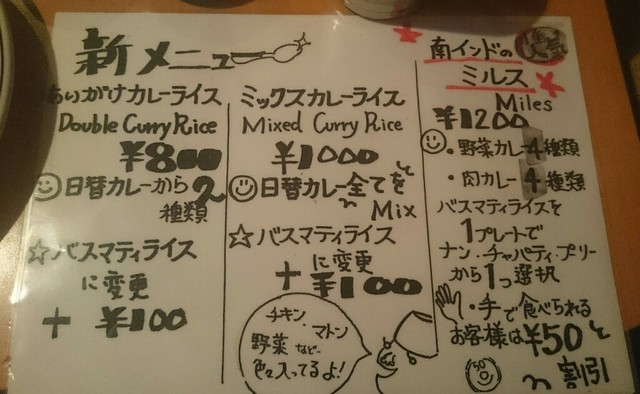 新メニュー
あいがけカレーライス
Double Curry Rice
¥800
日替カレーから2
種類
☆バスマティライス
に変更
+ ¥100
ミックスカレーライス
Mixed Curry Rice
¥1000
日替カレー全てを
Mix
☆バスマティライス
に変更
+ ¥100
チキン
・マトン
野菜 など…
色々入ってるよ!
南インドの
人気
ミルス
Miles
¥1200
・野菜カレー4種類
・肉カレー4種類
バスマティライスを
1プレートで
ナン・チャパティ・プリー
から1つ選択
・手で食べられる
お客様は¥50
割引
50